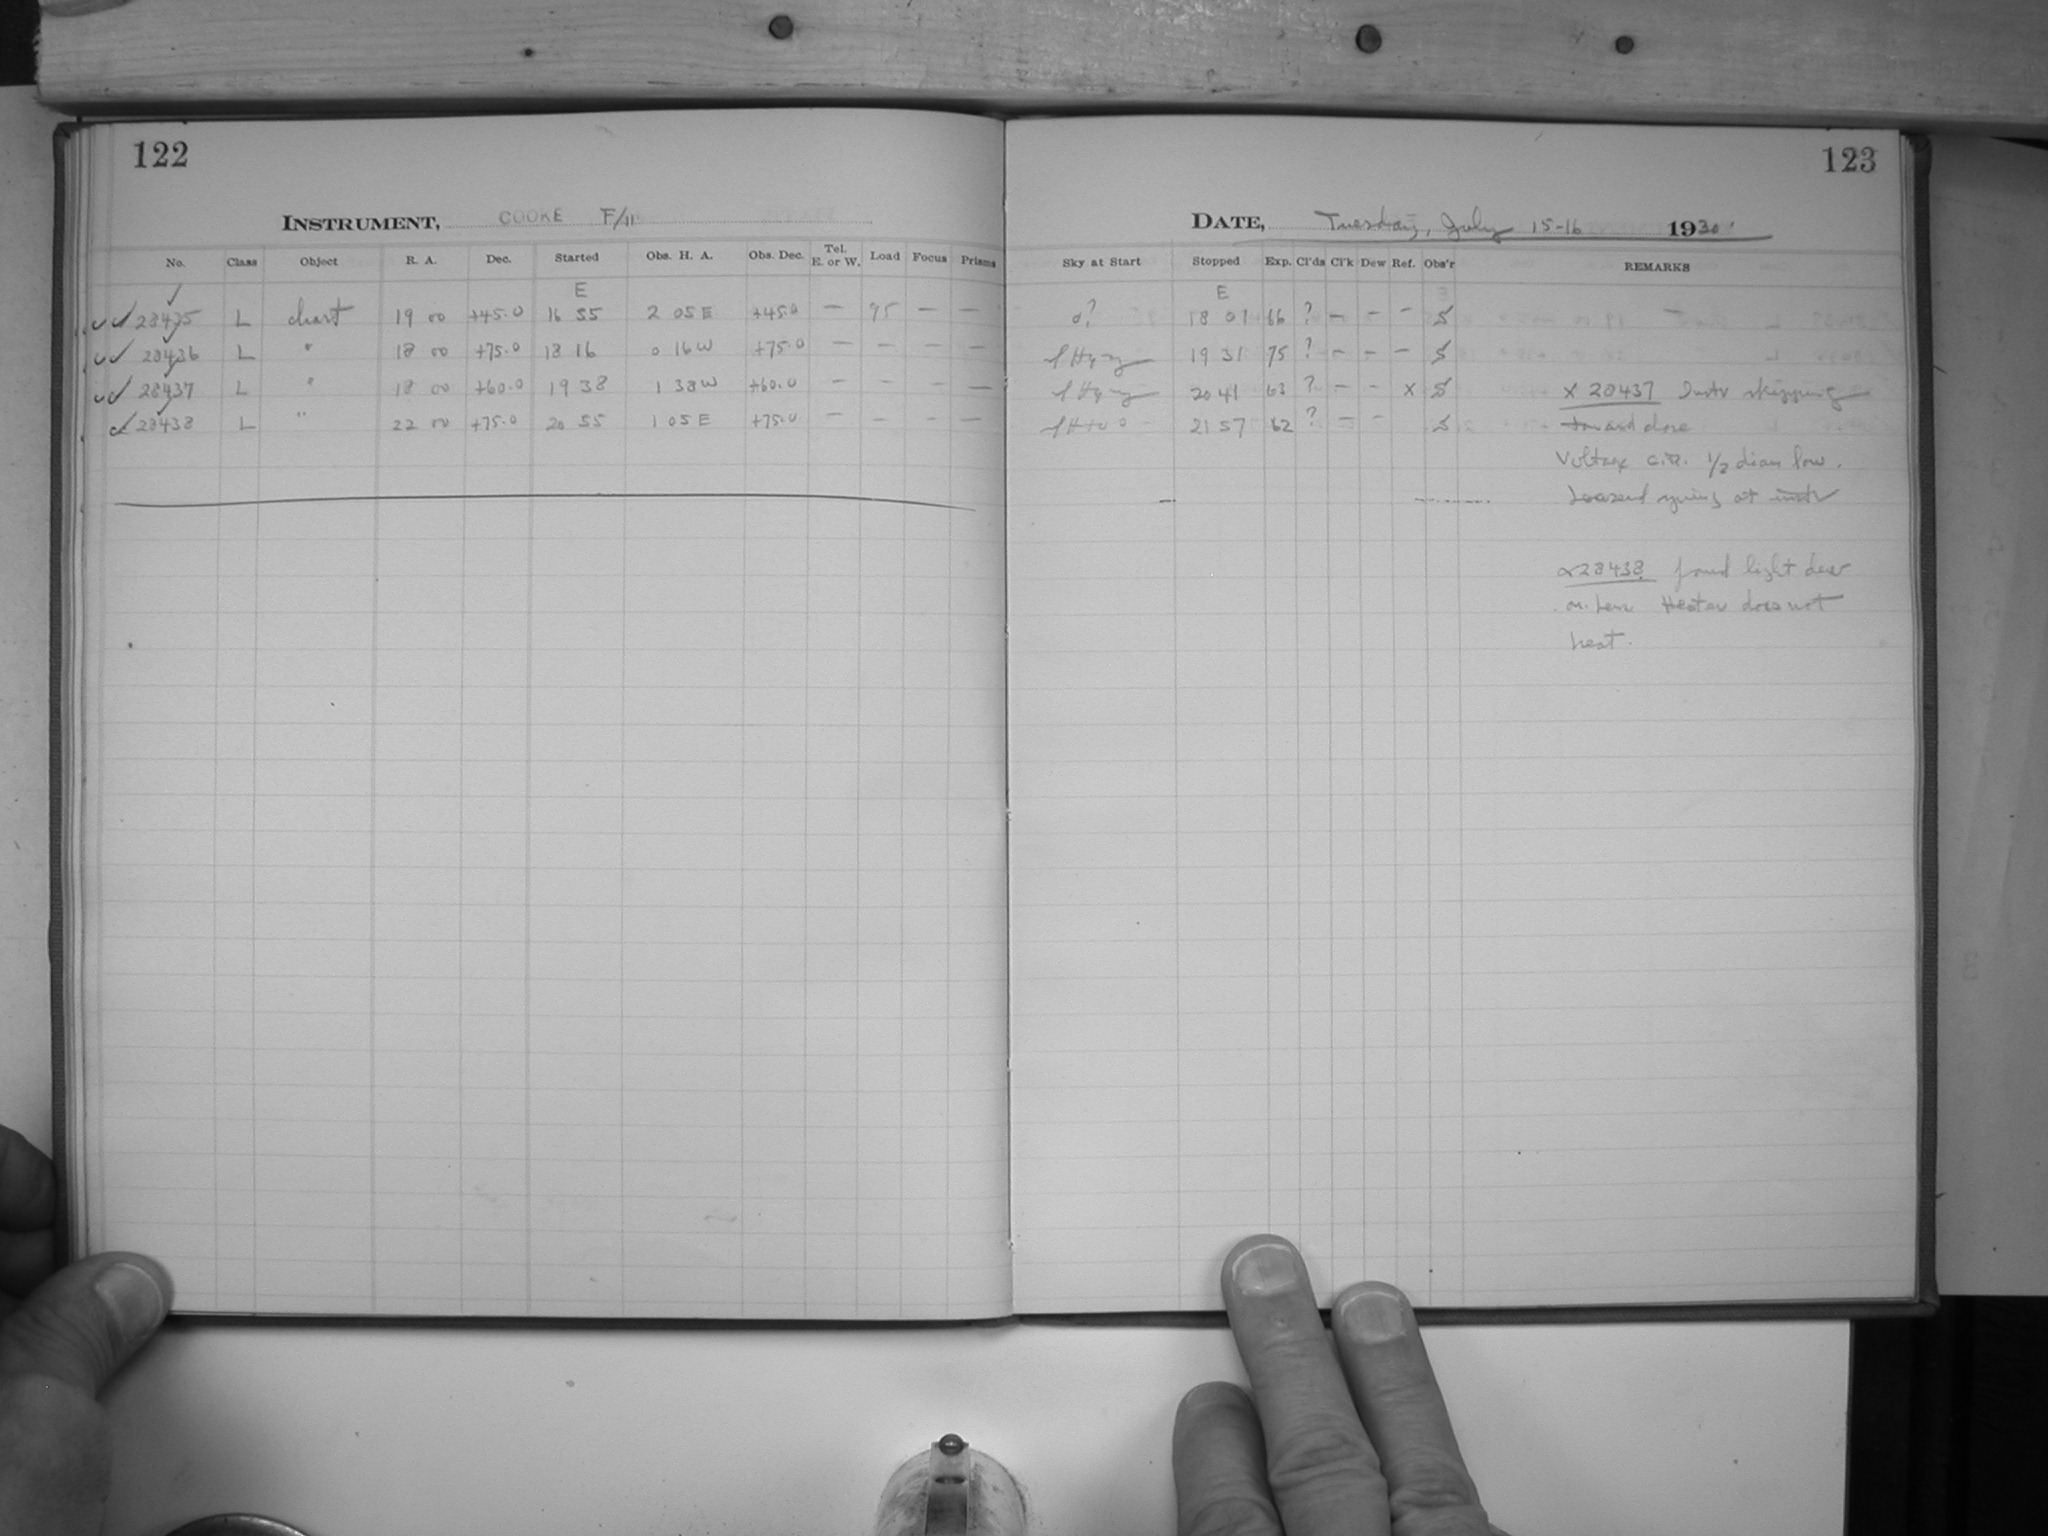 122
INSTRUMENT, COOKE F/11
No. Class Object R. A. Dec. Started Obs. H. A. Obs. Dec. Tel. E. or W. Load Focus Prisms
E
28435 L chart 19 00 +45.0 16 55 2 05 E +45.0 — 95 — —
28436 L " 18 00 +75.0 18 16 0 16 W +75.0 — — — —
28437 L " 18 00 +60.0 19 38 1 38 W +60.0 — — — —
28438 L " 22 00 +75.0 20 55 1 05 E +75.0 — — — —
123
DATE, Tuesday, July 15-16 1930
Sky at Start Stopped Exp. Cl'ds Cl'k Dew Ref. Obs'r REMARKS
E
0? 18 01 66 ? — — — S
19 31 75 ? — — — S
20 41 63 ? — — x S x 28437 Instr skipping
21 57 62 ? — — S toward close
Voltage 1/2 diam low.
at instr
x28438 found light dew
on lens Heater does not
heat.